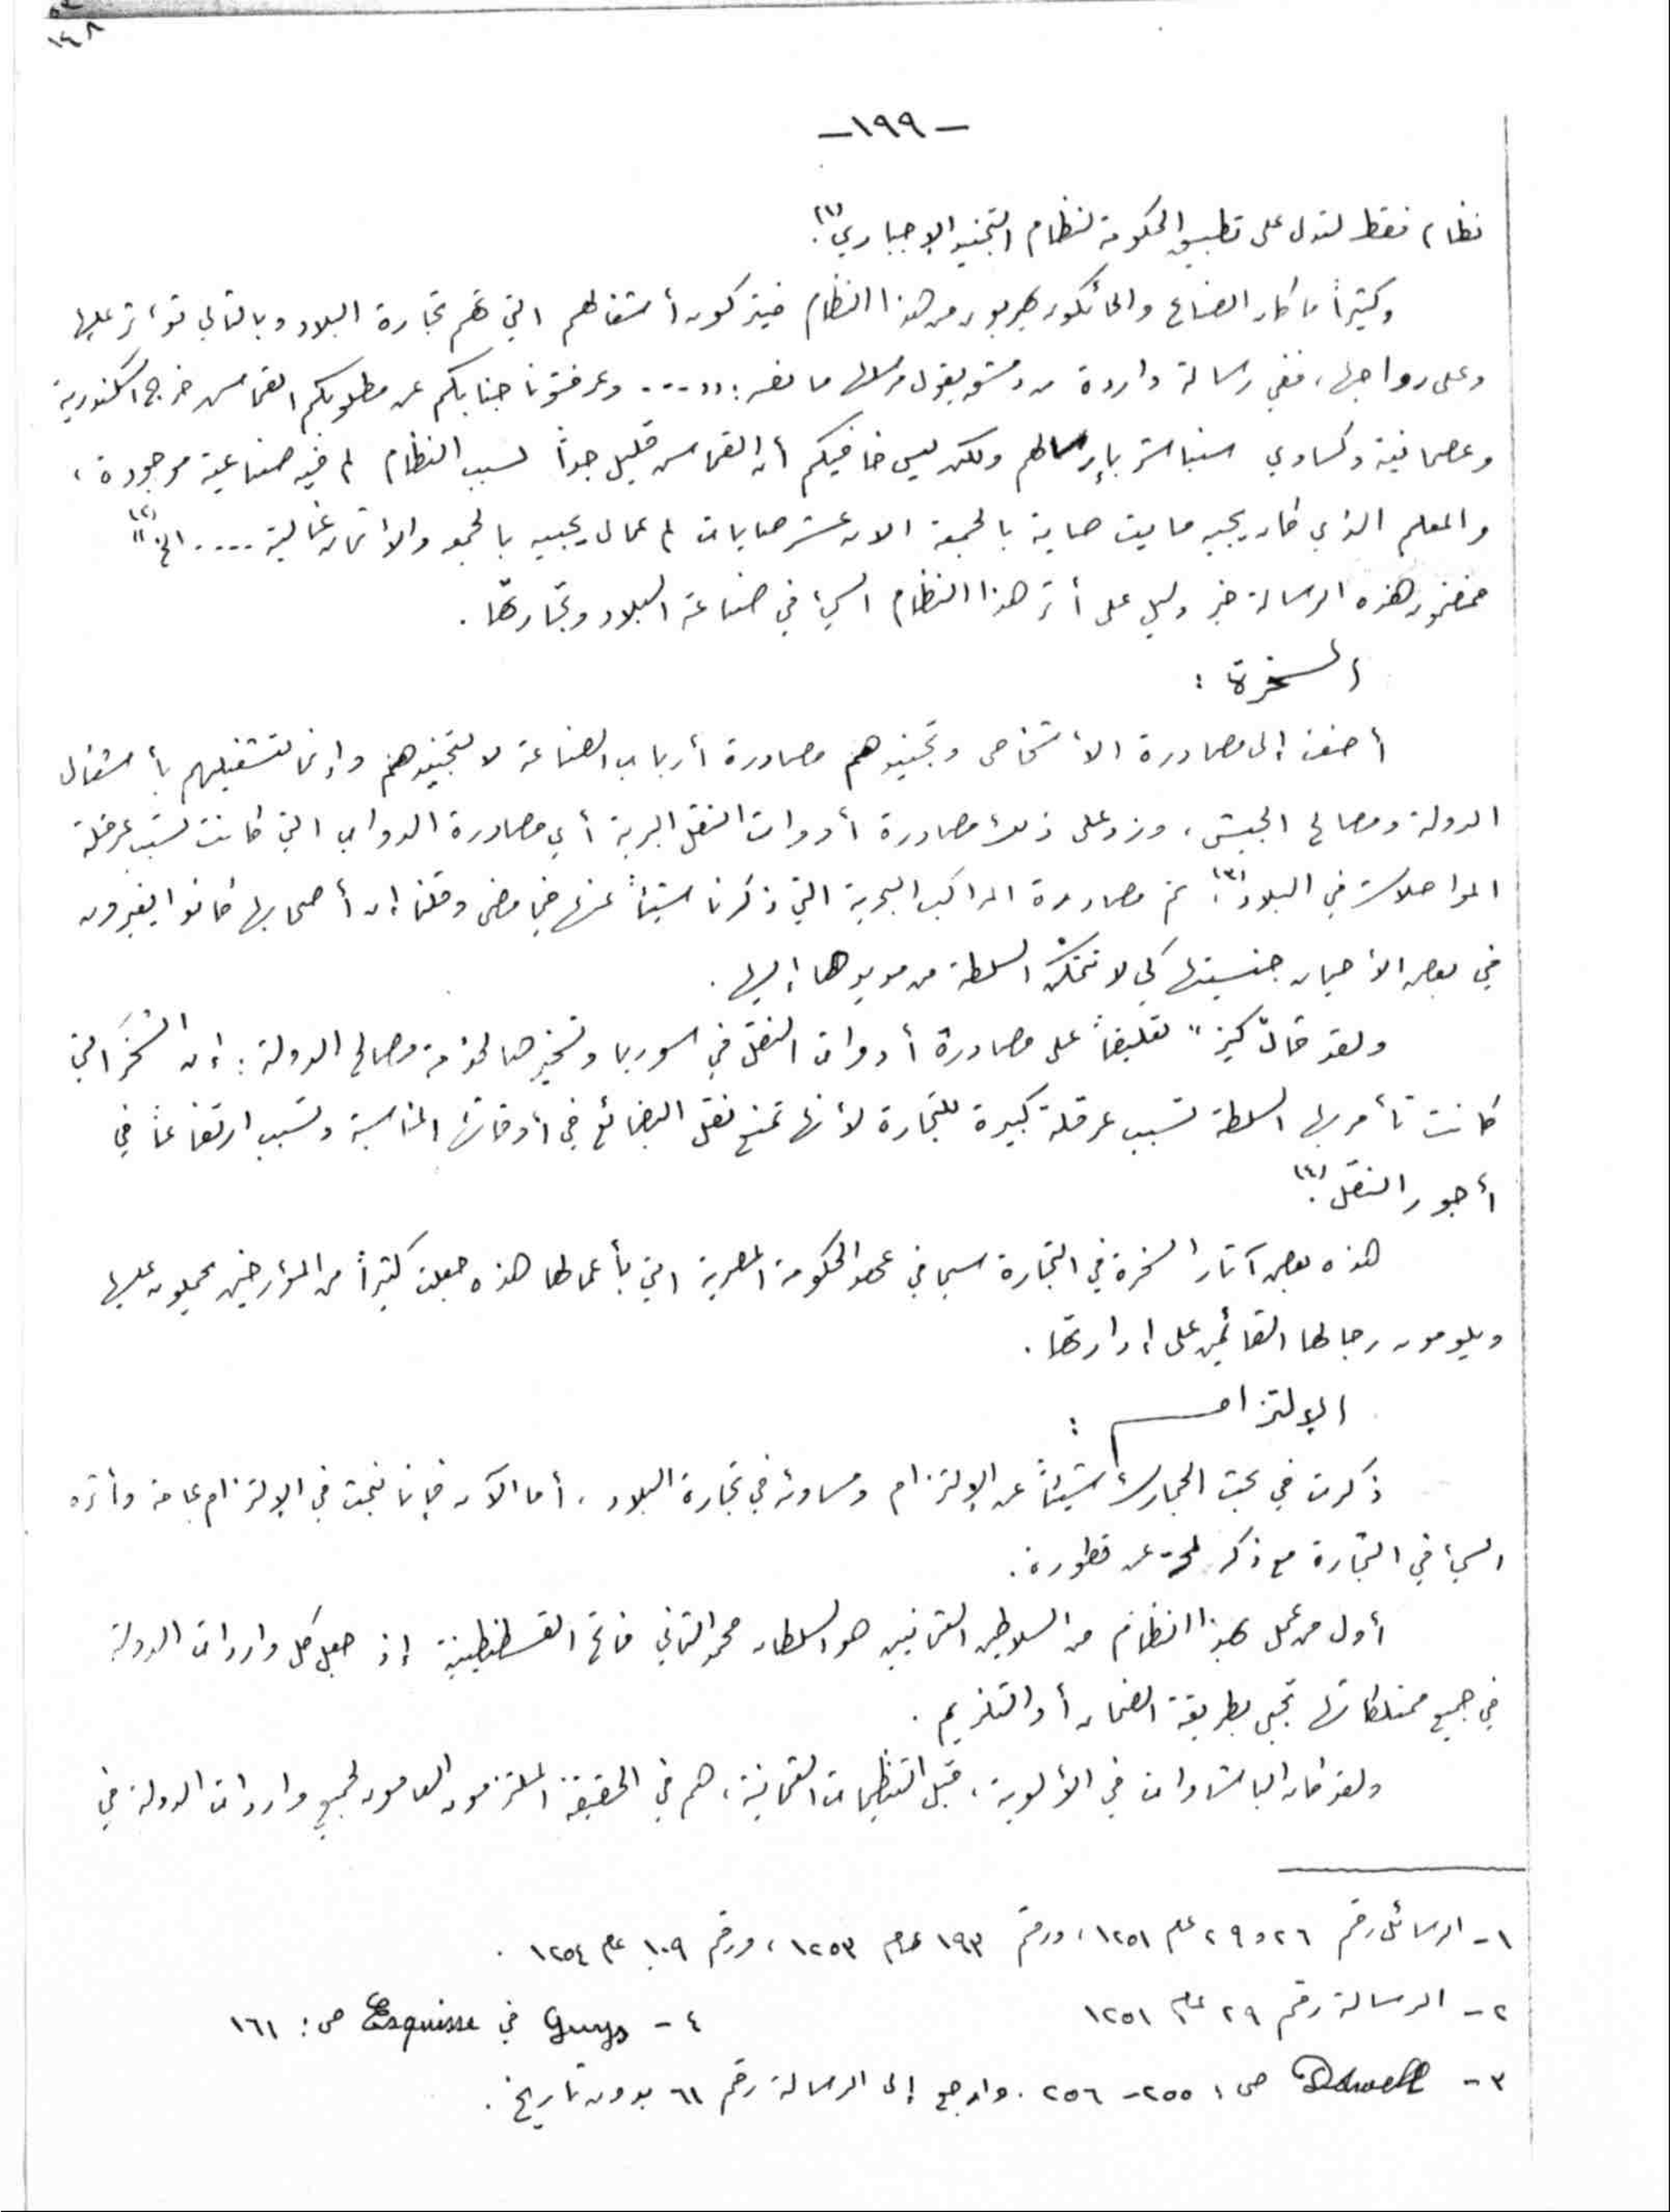 ١٤٨
-١٩٩-
نظام فقط لتدل على تطبيق الحكومة لنظام التجنيد الإجباري(١).
وكثيراً ما كان الصناع والحائكون يهربون من هذا النظام فيتركون أشغالهم التي تهم تجارة البلاد وبالتالي تؤثر عليها
وعلى رواجها، ففي رسالة واردة من دمشق يقول مرسلها ما نصه: ((.... وعرفتونا جنابكم عن مطلوبكم القماش خرج اسكندرية
وعصمانية وكساوي سنباشر بإرسالهم ولكن ليس خافيكم أن القماش قليل جداً لسبب النظام لم فيه صناعية موجودة،
والمعلم الذي كان يجيبه مايت صاية بالجمعة الان عشر صايات لم عمال يجيبه بالجمعه والأثمان غالية .... الخ))(٢)
فمضمون هذه الرسالة خير دليل على أثر هذا النظام السيء في صناعة البلاد وتجارتها.
السخرة :
أضف إلى مصادرة الأشخاص وتجنيدهم مصادرة أرباب الصناعة لا لتجنيدهم وإنما لتشغيلهم بأشغال
الدولة ومصالح الجيش، وزد على ذلك مصادرة أدوات النقل البرية أي مصادرة الدواب التي كانت تسبب عرقلة
المواصلات في البلاد(٣). ثم مصادرة المراكب البحرية التي ذكرنا شيئاً عنها فيما مضى وقلنا إن أصحابها كانوا يغيرون
في بعض الأحيان جنسيتها كي لا تتمكن السلطة من مد يدها إليها.
ولقد قال كيز" تعليقاً على مصادرة أدوات النقل في سوريا وتسخيرها لخدمة مصالح الدولة: إن السخر التي
كانت تأمر بها السلطة تسبب عرقلة كبيرة للتجارة لأنها تمنع نقل البضائع في أوقاتها المناسبة وتسبب ارتفاعاً في
أجور النقل(٤).
هذه بعض آثار السخرة في التجارة سيما في عهد الحكومة المصرية التي بأعمالها هذه جعلت كثيراً من المؤرخين يحملون عليها
ويلومون رجالها القائمين على إدارتها.
الإلتزام :
ذكرت في بحث الجمارك شيئاً عن الإلتزام ومساوئه في تجارة البلاد، أما الآن فإننا نبحث في الإلتزام عامة وأثره
السيء في التجارة مع ذكر لمحة عن تطوره.
أول من عمل بهذا النظام من السلاطين العثمانيين هو السلطان محمد الثاني فاتح القسطنطينية إذ جعل كل واردات الدولة
في جميع ممتلكاتها تجبى بطريقة الضمان أو التلزيم.
ولقد كان الباشاوات في الألوية، قبل التنظيمات العثمانية، هم في الحقيقة الملتزمون العامون لجميع واردات الدولة في
١- الرسائل رقم ٢٦ و ٢٩ عام ١٢٥١، ورقم ١٩٣ عام ١٢٥٣، ورقم ١٠٩ عام ١٢٥٤.
٢- الرسالة رقم ٢٩ عام ١٢٥١
٤- Guys في Esquisse ص: ١٦١
٣- ص: ٢٥٥-٢٥٦. وارجع إلى الرسالة رقم ٦١ بدون تاريخ.